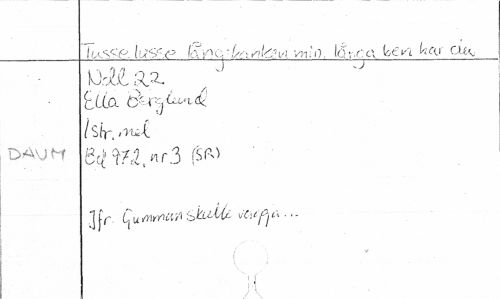 Tusse lusse långskanken min, långa ben har du
Ndl 22
Ella Berglund
1 str, mel
DAUM Bd 972, nr 3 (SR)
Jfr. Gumman skulle